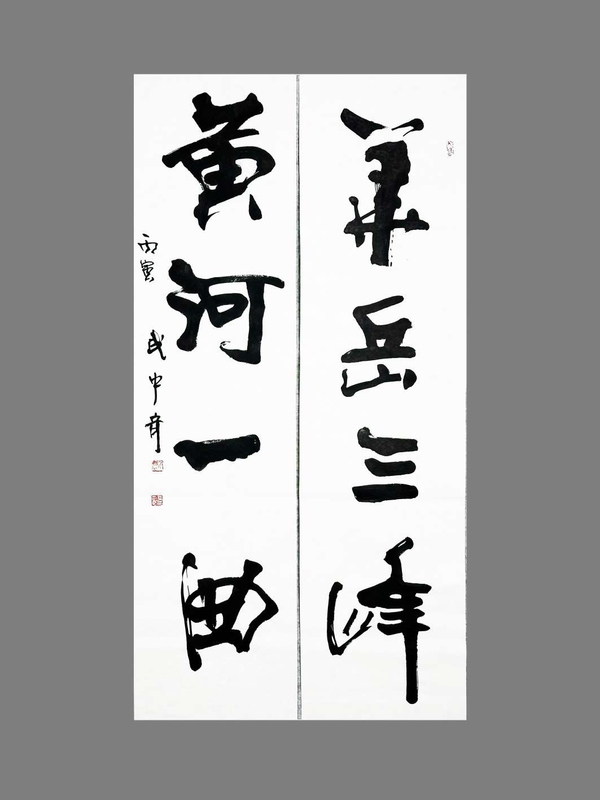 華岳三峰
黄河一曲
丙寅 武中奇